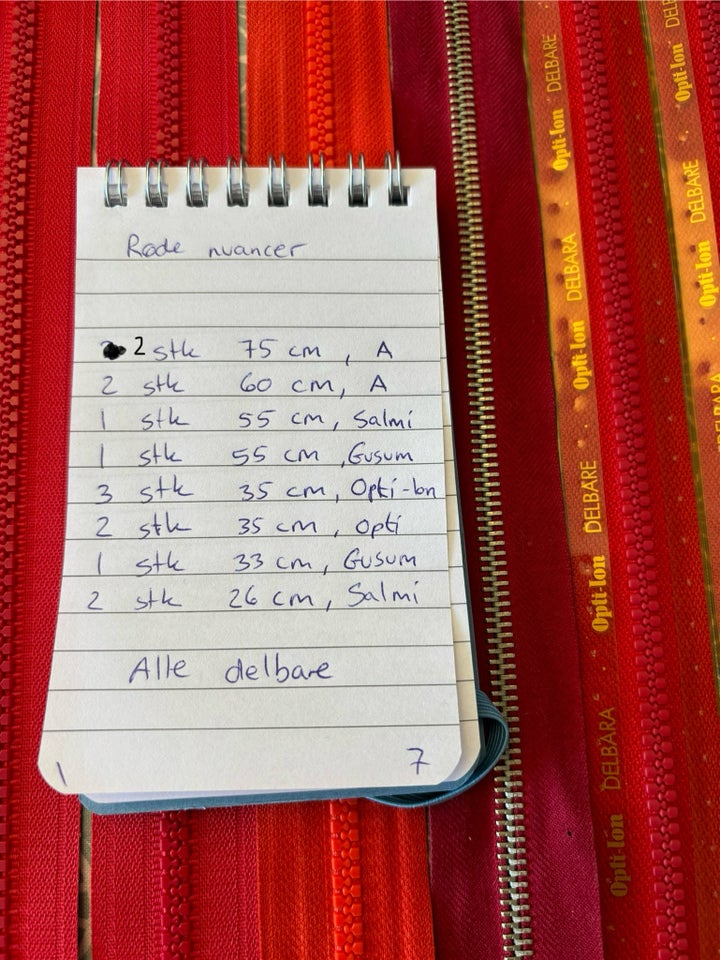 Røde nuancer
2 stk 75 cm, A
2 stk 60 cm, A
1 stk 55 cm, Salmi
1 stk 55 cm, Gusum
3 stk 35 cm, Opti-lon
2 stk 35 cm, Opti
1 stk 33 cm, Gusum
2 stk 26 cm, Salmi
Alle delbare
1 7
DELBARE
Opti-lon
DELBARA
Opti-lon
DELBARE
Opti-lon
DELBARA
Opti-lon
Opti-lon
DELBARE
Opti-lon